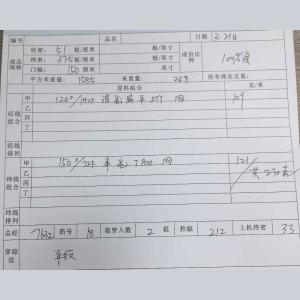 编号 品名 日期 3.21日
成品规格 经密: 51 根/厘米 根/英寸 成份比例 100%涤
纬密: 37.5 根/厘米 根/英寸
门幅: 150 厘米 英寸
平方米重量 158.5 米重量 238 坯布理论克重:
原料组合 克/米
经线组合 甲 120D/192F 消光 DTY 网 109
乙
丙
丁
经线排列
纬线组合 甲 150D/72F 半光 T800 网 121
乙 共230克
丙
丁
纬线排列
总经 7632 筘号 18 筘穿入数 2 根 筘幅 212 上机纬密 33
穿综法 平纹